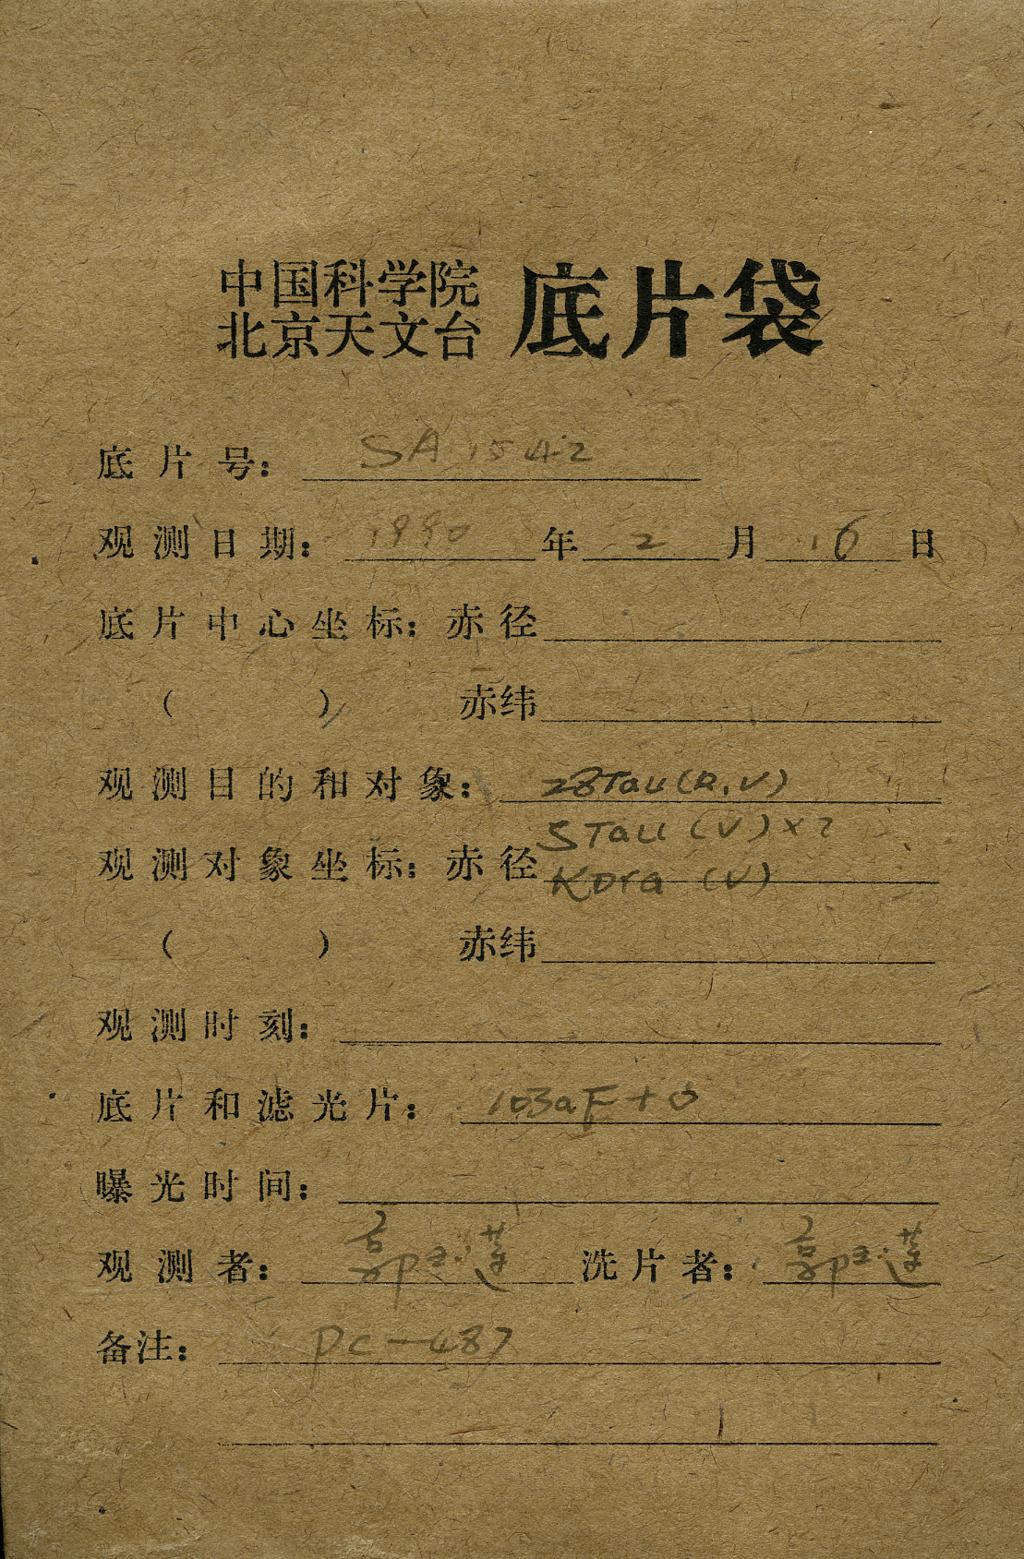 中国科学院
北京天文台 底片袋
底片号： SA 1542
观测日期： 1990 年 2 月 16 日
底片中心坐标：赤径
（ ） 赤纬
观测目的和对象： 28Tau(R,V)
5 Tau (V)×2
观测对象坐标：赤径 KDra (V)
（ ） 赤纬
观测时刻：
底片和滤光片： 103aF+
曝光时间：
观测者： 郭玉莲 洗片者： 郭玉莲
备注： PC-487